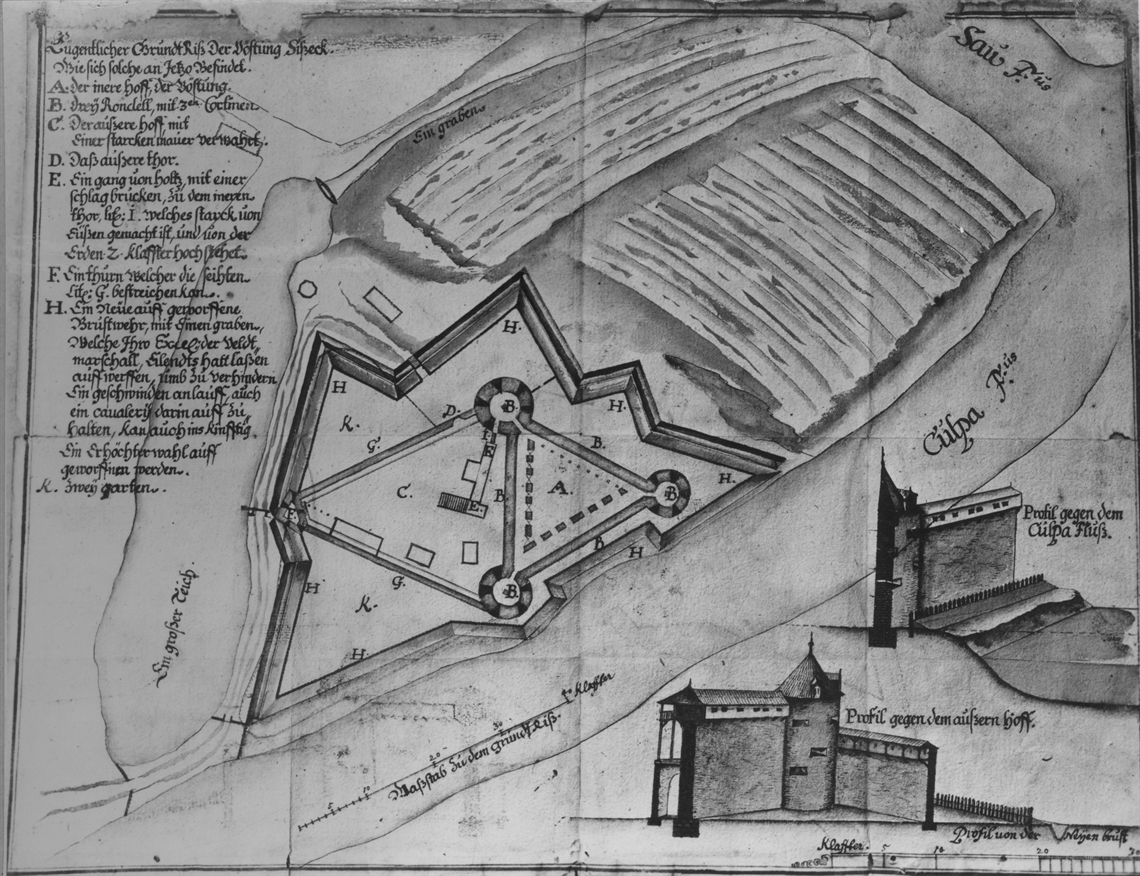 Eugentlicher Grundt Riß Der Vöstung Sißeck.
Wie sich solche an Jetzo Befindet.
A. Der inere Hoff, der Vöstung.
B. dreÿ Rondell, mit 3en Cortinen
C. Der außere hoff mit
Einer starcken mauer verwahrt.
D. Daß außere thor.
E. Ein gang von holtz, mit einer
schlag brucken, zu dem ineren
thor, lit: I. Welches starck von
gemacht ist, und von der
Erden 2. Klaffter hoch stehet.
F. Ein thurn Welcher die seihten
Lit: G. bestreichen kan.
H. Ein Neue auff geworffene
Brustwehr, mit Einen graben,
Welche Ihro Der Veldt
marschall, Eilendts hatt laßen
auff werffen, umb zu verhindern
Ein geschwinden anlauff, auch
ein cavalerÿ darin auff zu
halten, kan auch ins kinfftig
Ein Erhöchter wahl auff
geworffnen werden.
K. Zweÿ garten.
Ein graben
Sau F:us
Culpa F:us
Ein großer Teich.
H.
H
H.
K.
D.
B.
G.
B.
I
E
C.
B
A.
B
H.
E.
F.
B
H
H
G.
B.
K.
H.
Profil gegen dem
Culpa Fluß.
Profil gegen dem außern hoff.
5 10 20 30 40 Klaffter
Maßstab zu dem Grundt Riß.
Profil von der Neÿen brust
Klaffter. 5 10 20 30